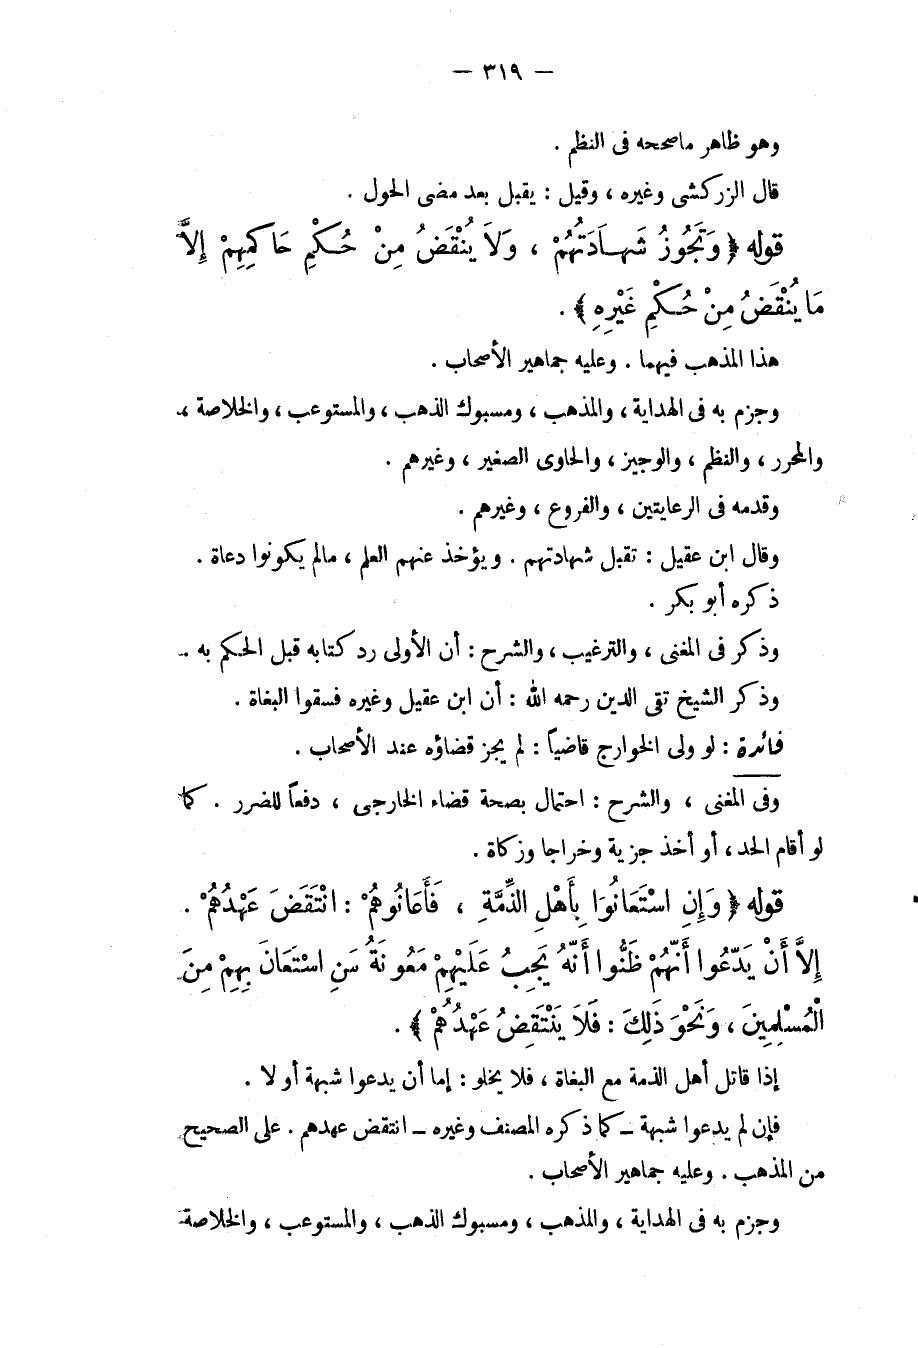 — ٣١٩ —
وهو ظاهر ماصححه فى النظم .
قال الزركشى وغيره ، وقيل : يقبل بعد مضى الحول .
قوله ﴿ وَتَجُوزُ شَهَادَتُهُمْ ، وَلاَ يُنْقَضُ مِنْ حُكْمِ حَاكِمِهِمْ إِلاَّ
مَا يُنْقَضُ مِنْ حُكْمِ غَيْرِهِ ﴾ .
هذا المذهب فيهما . وعليه جماهير الأصحاب .
وجزم به فى الهداية ، والمذهب ، ومسبوك الذهب ، والمستوعب ، والخلاصة ،
والمحرر ، والنظم ، والوجيز ، والحاوى الصغير ، وغيرهم .
وقدمه فى الرعايتين ، والفروع ، وغيرهم .
وقال ابن عقيل : تقبل شهادتهم . ويؤخذ عنهم العلم ، مالم يكونوا دعاة .
ذكره أبو بكر .
وذكر فى المغنى ، والترغيب ، والشرح : أن الأولى رد كتابه قبل الحكم به .
وذكر الشيخ تقى الدين رحمه الله : أن ابن عقيل وغيره فسقوا البغاة .
فائدة : لو ولى الخوارج قاضياً : لم يجز قضاؤه عند الأصحاب .
وفى المغنى ، والشرح : احتمال بصحة قضاء الخارجى ، دفعاً للضرر . كما
لو أقام الحد ، أو أخذ جزية وخراجا وزكاة .
قوله ﴿ وَإِنِ اسْتَعَانُوا بِأَهْلِ الذِّمَّةِ ، فَأَعَانُوهُمْ : انْتَقَضَ عَهْدُهُمْ .
إِلاَّ أَنْ يَدَّعُوا أَنَّهُمْ ظَنُّوا أَنَّهُ يَجِبُ عَلَيْهِمْ مَعُونَةُ مَنِ اسْتَعَانَ بِهِمْ مِنَ
الْمُسْلِمِينَ ، وَنَحْوَ ذَلِكَ : فَلاَ يَنْتَقِضُ عَهْدُهُمْ ﴾ .
إذا قاتل أهل الذمة مع البغاة ، فلا يخلو : إما أن يدعوا شبهة أو لا .
فإن لم يدعوا شبهة ــ كما ذكره المصنف وغيره ــ انتقض عهدهم . على الصحيح
من المذهب . وعليه جماهير الأصحاب .
وجزم به فى الهداية ، والمذهب ، ومسبوك الذهب ، والمستوعب ، والخلاصة